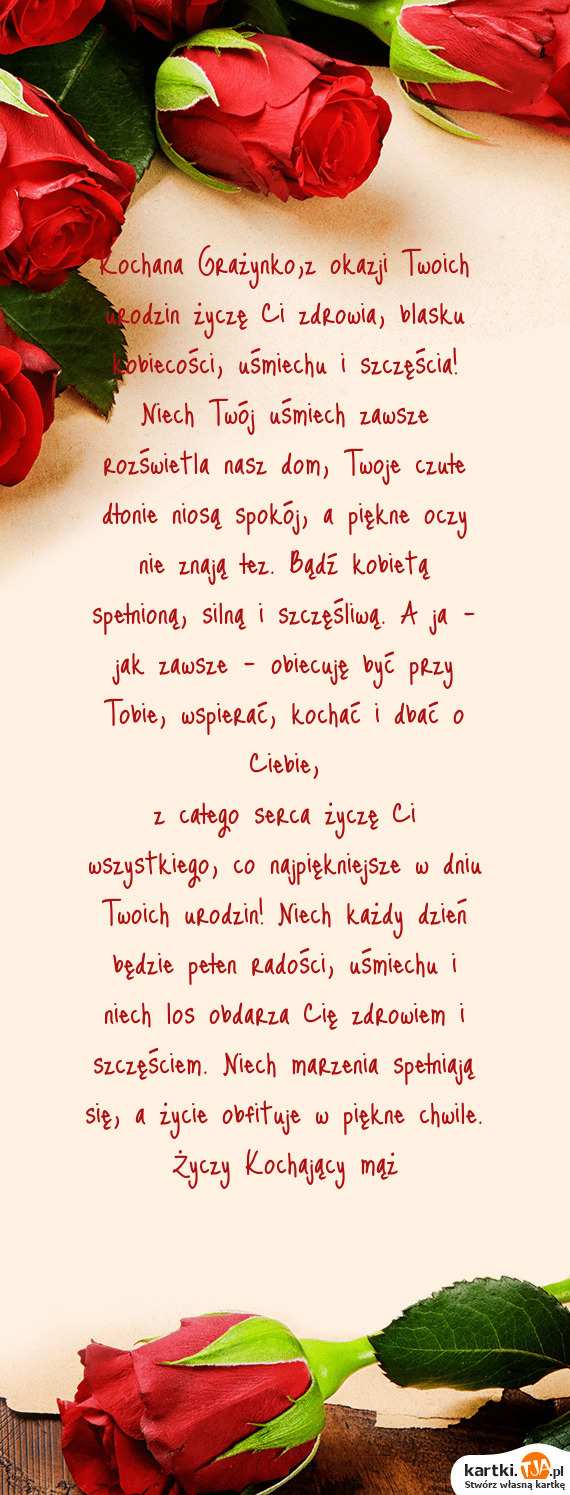 Kochana Grażynko,z okazji Twoich
urodzin życzę Ci zdrowia, blasku
kobiecości, uśmiechu i szczęścia!
Niech Twój uśmiech zawsze
rozświetla nasz dom, Twoje czułe
dłonie niosą spokój, a piękne oczy
nie znają łez. Bądź kobietą
spełnioną, silną i szczęśliwą. A ja -
jak zawsze - obiecuję być przy
Tobie, wspierać, kochać i dbać o
Ciebie,
z całego serca życzę Ci
wszystkiego, co najpiękniejsze w dniu
Twoich urodzin! Niech każdy dzień
będzie pełen radości, uśmiechu i
niech los obdarza Cię zdrowiem i
szczęściem. Niech marzenia spełniają
się, a życie obfituje w piękne chwile.
Życzy Kochający mąż
kartki.TJA.pl
Stwórz własną kartkę